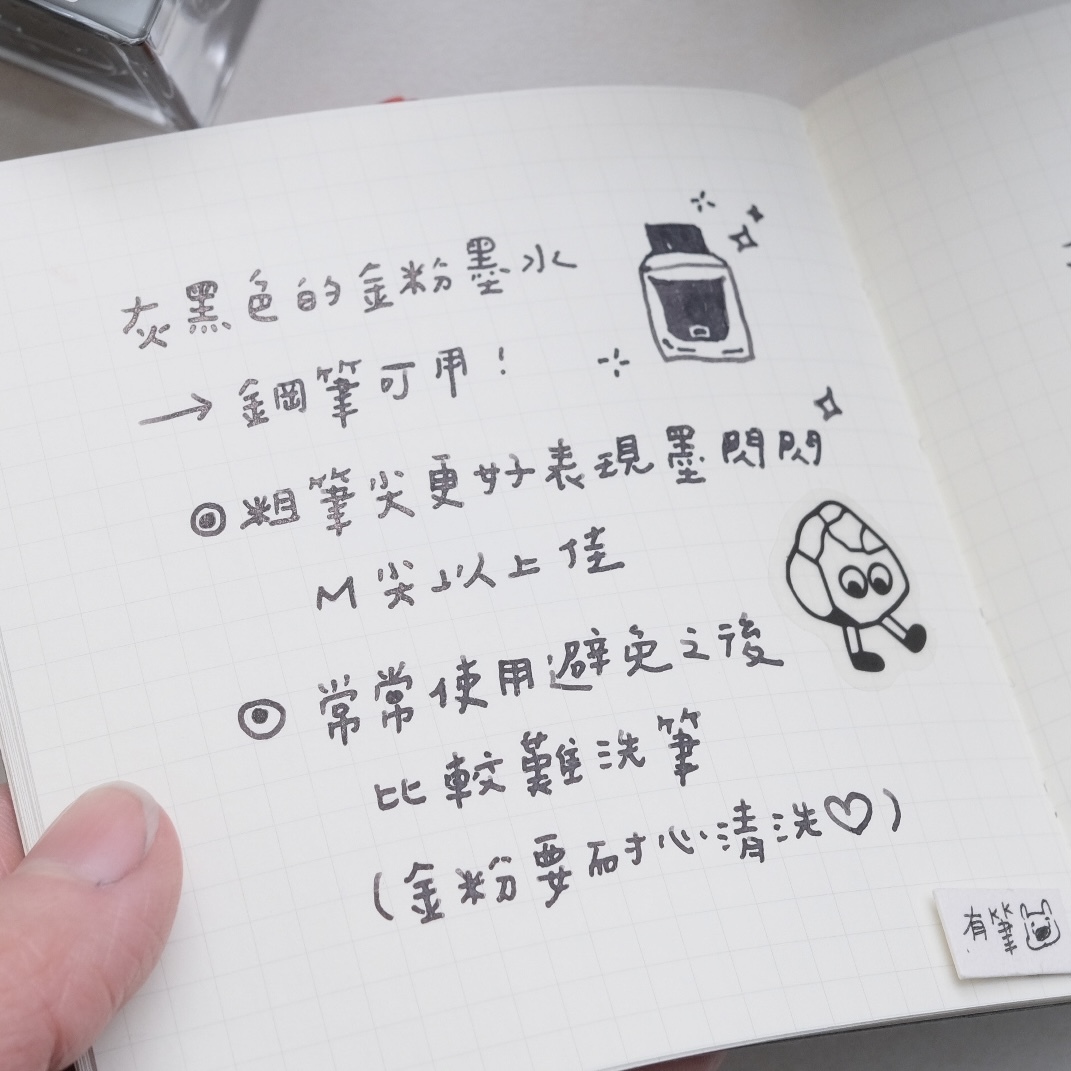 灰黑色的金粉墨水
→ 鋼筆可用！
◎ 粗筆尖更好表現墨閃閃
M尖以上佳
◎ 常常使用避免之後
比較難洗筆
(金粉要耐心清洗♡)
有筆